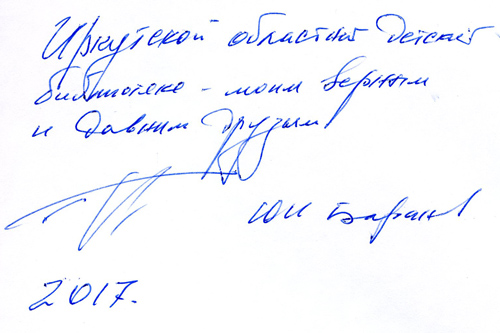 Иркутской областной Детской
библиотеке - моим верным
и давним друзьям
Юи Баранов
2017.